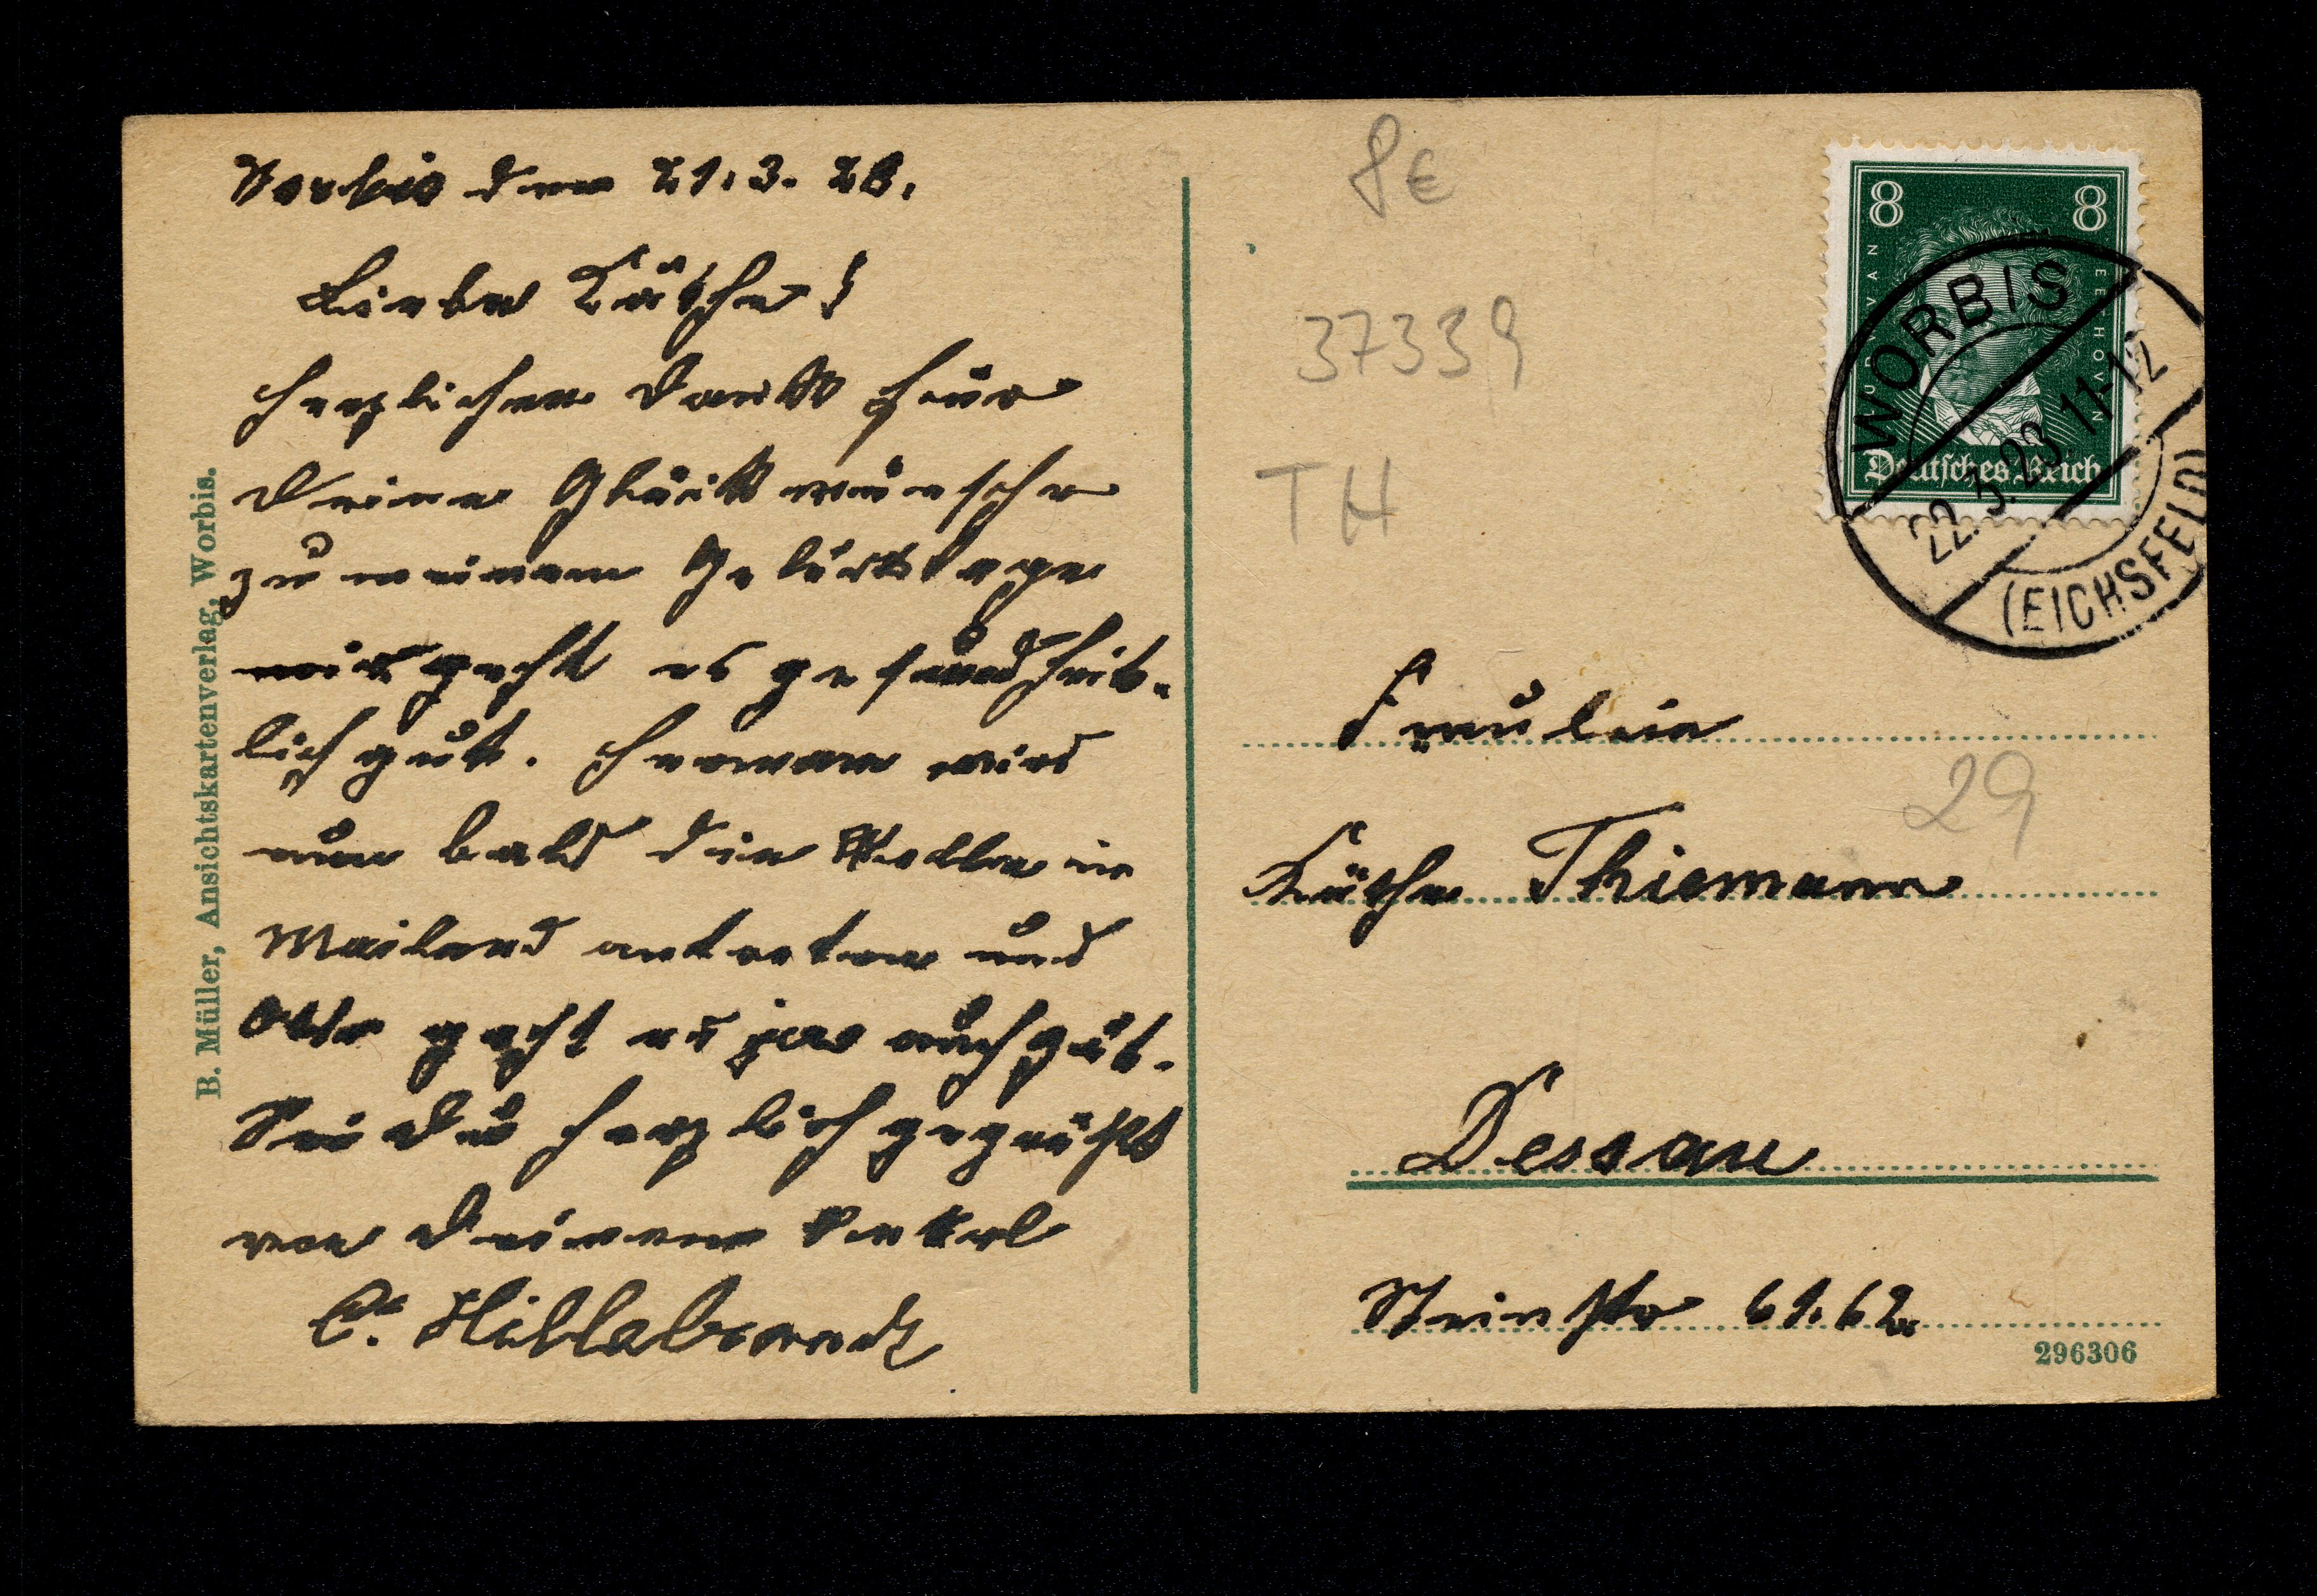 Worbis den 21.3. 28.
Liebe Käthe!
herzlichen Dank für
Deine Glückwünsche
zu meinem Geburtstage
mir geht es gesundheit-
lich gut. Hermann wird
nun bald die Stelle in
Mailand antreten und
Otto geht es ja auch gut.
Sei Du herzlich gegrüßt
von Deinem Onkel
C. Hillebrandt
B. Müller, Ansichtskartenverlag, Worbis.
8 €
37339
TH
29
8 8
LUDWIG VAN BEETHOVEN
Deutsches Reich
WORBIS
22.3.28 11-12
(EICHSFELD)
Fräulein
Käthe Thiemann
Dessau
Steinstr 61.62
296306